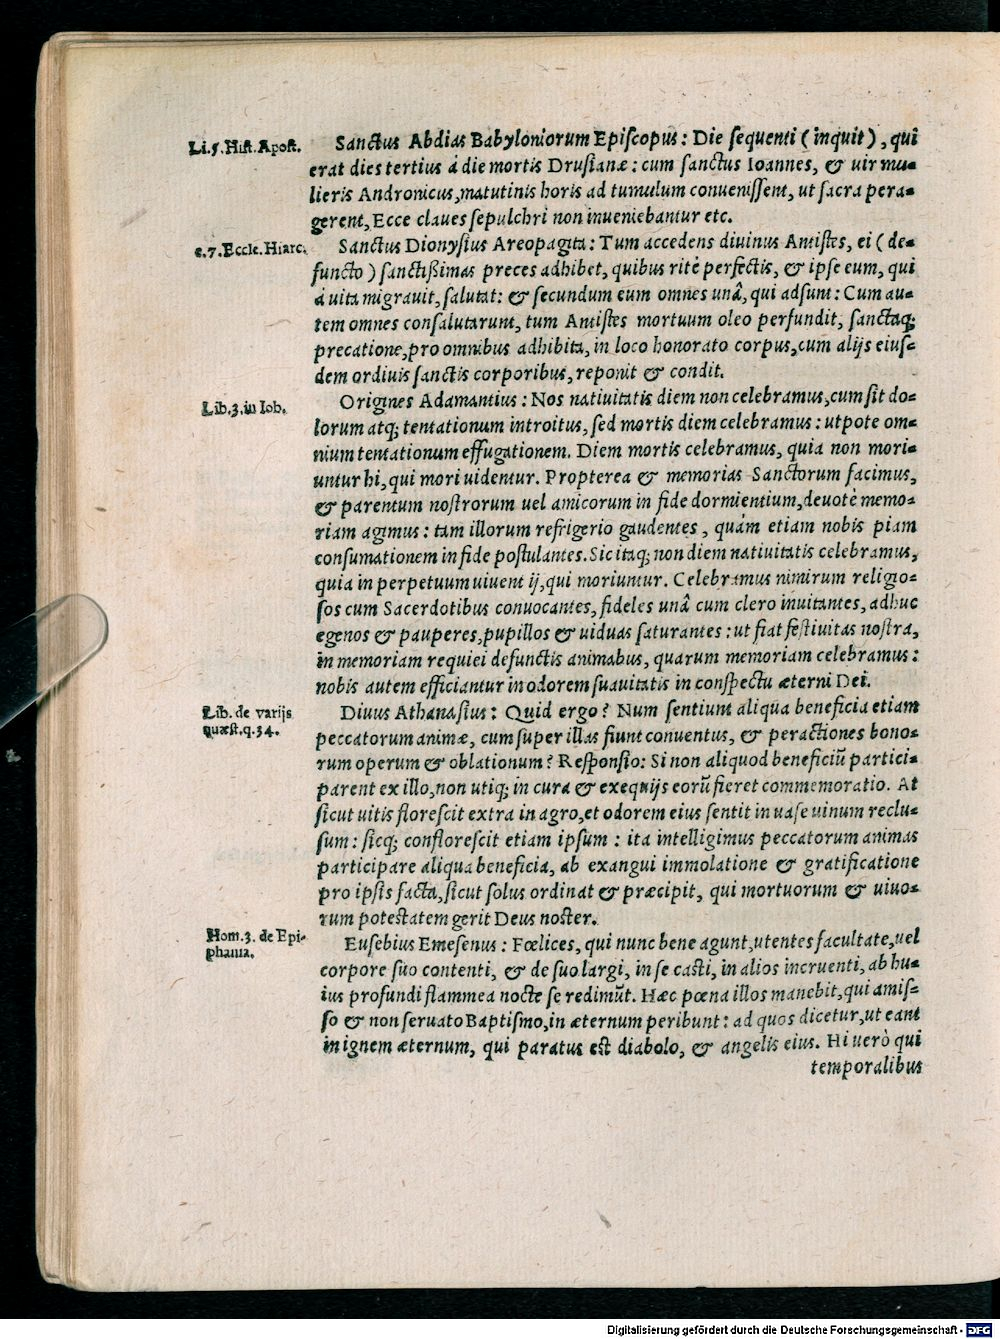 Li.5.Hist.Apost.
Sanctus Abdias Babyloniorum Episcopus: Die sequenti (inquit), qui
erat dies tertius á die mortis Drusianæ: cum sanctus Ioannes, & uir mu-
lieris Andronicus, matutinis horis ad tumulum conuenissent, ut sacra pera-
gerent, Ecce claues sepulchri non inueniebantur etc.
c.7.Eccle.Hiarc.
Sanctus Dionysius Areopagita: Tum accedens diuinus Antistes, ei (de-
functo) sanctißimas preces adhibet, quibus ritè perfectis, & ipse eum, qui
á uita migrauit, salutat: & secundum eum omnes unâ, qui adsunt: Cum au-
tem omnes consalutarunt, tum Antistes mortuum oleo perfundit, sanctaq;
precatione, pro omnibus adhibita, in loco honorato corpus, cum alijs eius-
dem ordiuis sanctis corporibus, reponit & condit.
Lib.3.in Iob.
Origines Adamantius: Nos natiuitatis diem non celebramus, cum sit do-
lorum atq; tentationum introitus, sed mortis diem celebramus: utpote om-
nium tentationum effugationem. Diem mortis celebramus, quia non mori-
untur hi, qui mori uidentur. Propterea & memorias Sanctorum facimus,
& parentum nostrorum uel amicorum in fide dormientium, deuotè memo-
riam agimus: tam illorum refrigerio gaudentes, quám etiam nobis piam
consumationem in fide postulantes. Sic itaq; non diem natiuitatis celebramus,
quia in perpetuum uiuent ij, qui moriuntur. Celebramus nimirum religio-
sos cum Sacerdotibus conuocantes, fideles unâ cum clero inuitantes, adhuc
egenos & pauperes, pupillos & uiduas saturantes: ut fiat festiuitas nostra,
in memoriam requiei defunctis animabus, quarum memoriam celebramus:
nobis autem efficiantur in odorem suauitatis in conspectu æterni Dei.
Lib. de varijs
quæst.q.34.
Diuus Athanasius: Quid ergo? Num sentiunt aliqua beneficia etiam
peccatorum animæ, cum super illas fiunt conuentus, & peractiones bono-
rum operum & oblationum? Responsio: Si non aliquod beneficiũ partici-
parent ex illo, non utiq; in cura & exequijs eorũ fieret commemoratio. At
sicut uitis florescit extra in agro, et odorem eius sentit in uase uinum reclu-
sum: sicq; conflorescit etiam ipsum: ita intelligimus peccatorum animas
participare aliqua beneficia, ab exangui immolatione & gratificatione
pro ipsis facta, sicut solus ordinat & præcipit, qui mortuorum & uiuo-
rum potestatem gerit Deus noster.
Hom.3. de Epi-
phania.
Eusebius Emesenus: Fœlices, qui nunc bene agunt, utentes facultate, uel
corpore suo contenti, & de suo largi, in se casti, in alios incruenti, ab hu-
ius profundi flammea nocte se redimũt. Hæc pœna illos manebit, qui amis-
so & non seruato Baptismo, in æternum peribunt: ad quos dicetur, ut eant
in ignem æternum, qui paratus est diabolo, & angelis eius. Hi uerò qui
temporalibus
Digitalisierung gefördert durch die Deutsche Forschungsgemeinschaft - DFG